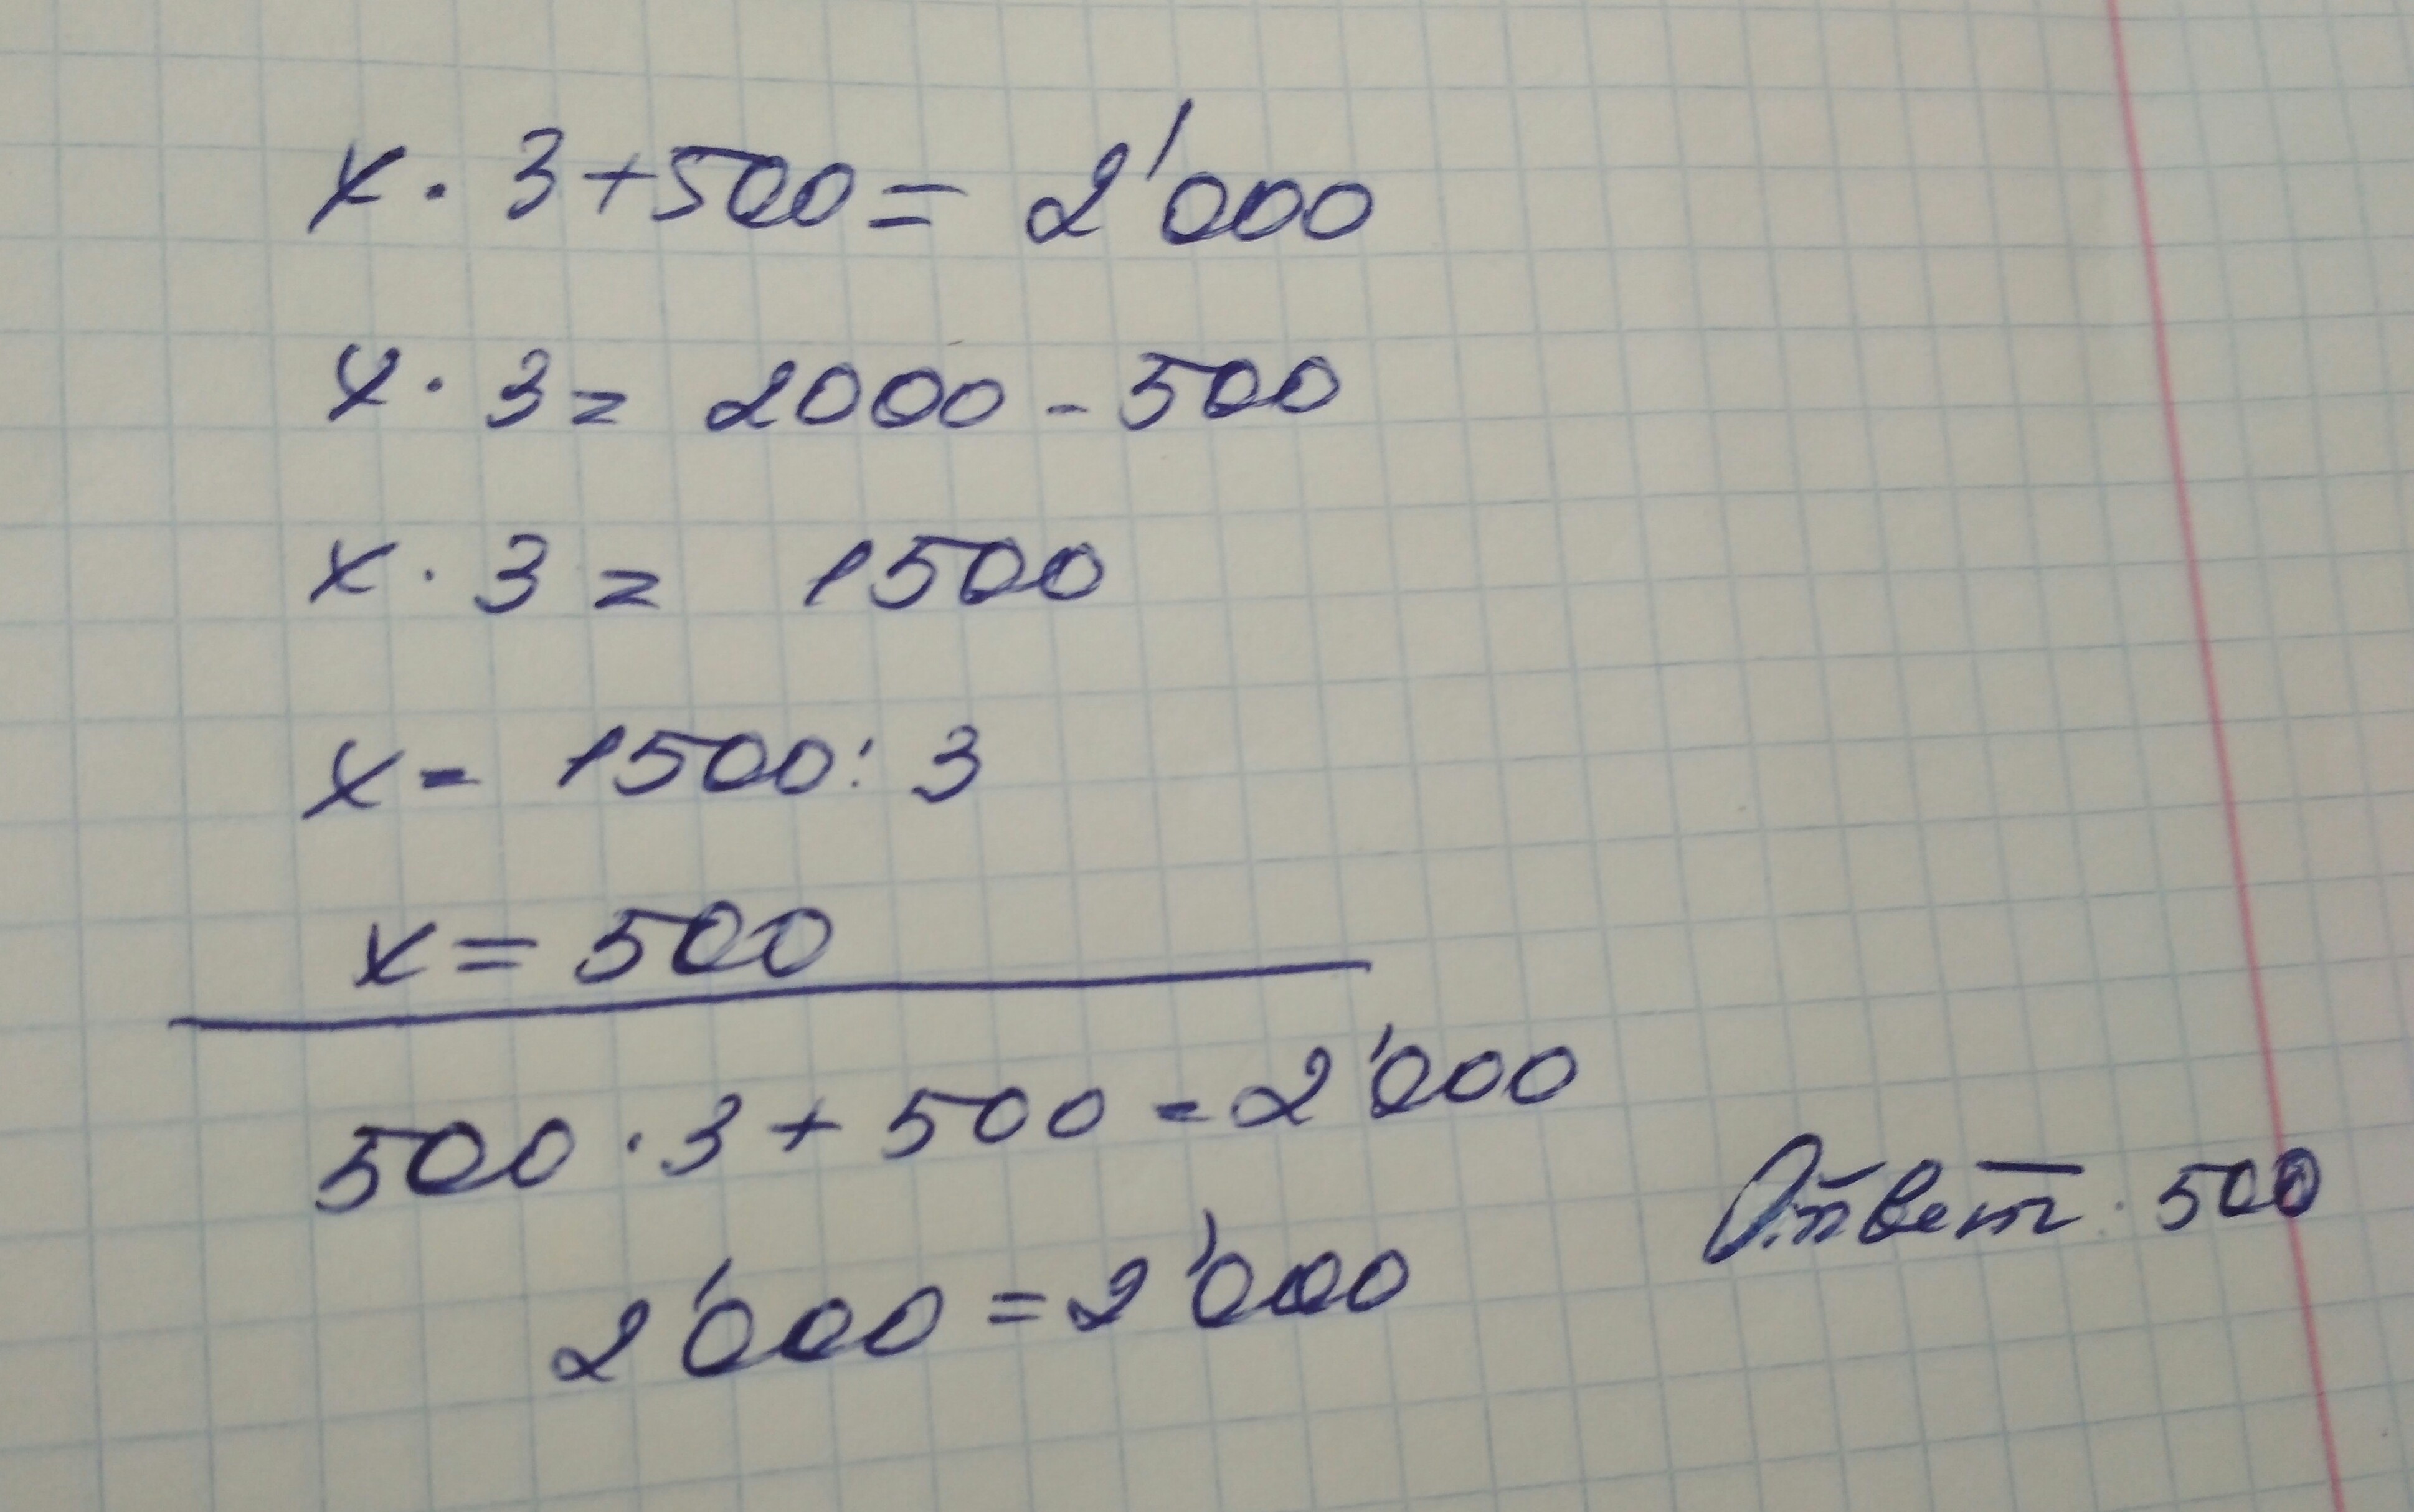 x · 3 + 500 = 2'000
x · 3 = 2000 - 500
x · 3 = 1500
x = 1500 : 3
x = 500
500 · 3 + 500 = 2'000
Ответ: 500
2'000 = 2'000